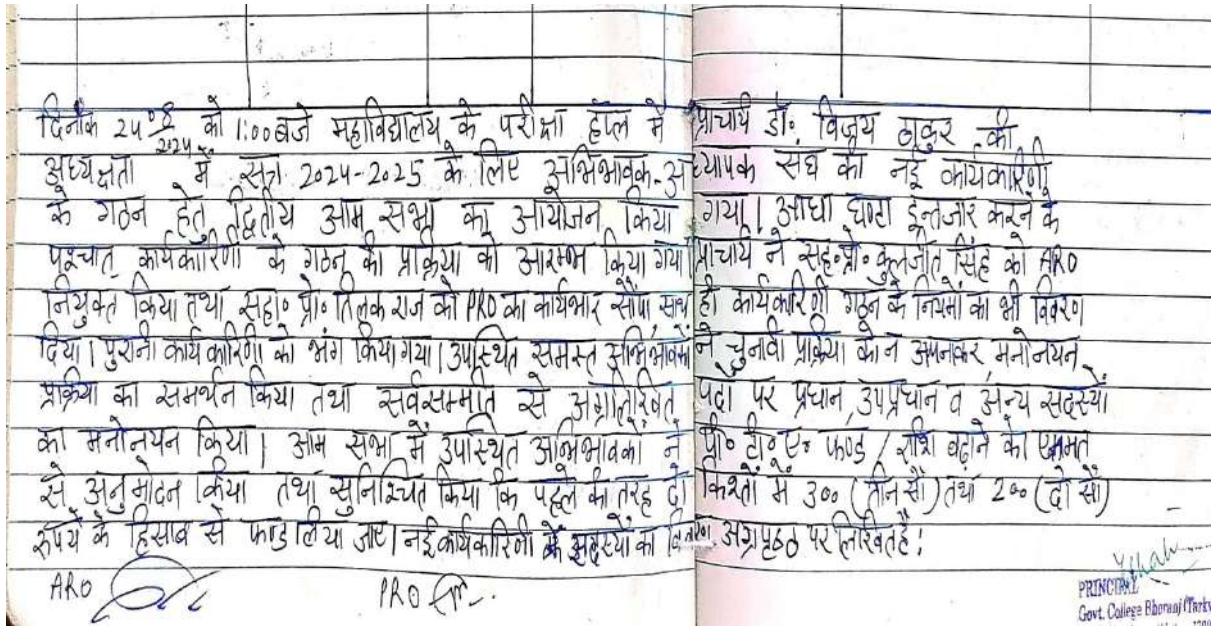 दिनांक 24 08/2024 को 1:00 बजे महाविद्यालय के परीक्षा हॉल में प्राचार्य डॉ॰ विजय ठाकुर की
अध्यक्षता में सत्र 2024-2025 के लिए अभिभावक-अध्यापक संघ की नई कार्यकारिणी
के गठन हेतु द्वितीय आम सभा का आयोजन किया गया। आधा घण्टा इन्तजार करने के
पश्चात् कार्यकारिणी के गठन की प्रक्रिया को आरम्भ किया गया। प्राचार्य ने सह॰ प्रो॰ कुलजीत सिंह को ARO
नियुक्त किया तथा सहा॰ प्रो॰ तिलक राज को PRO का कार्यभार सौंपा, साथ ही कार्यकारिणी गठन के नियमों का भी विवरण
दिया। पुरानी कार्यकारिणी को भंग किया गया। उपस्थित समस्त अभिभावकों ने चुनावी प्रक्रिया को न अपनाकर, मनोनयन
प्रक्रिया का समर्थन किया तथा सर्वसम्मति से अग्रलिखित पदों पर प्रधान, उपप्रधान व अन्य सदस्यों
का मनोनयन किया। आम सभा में उपस्थित अभिभावकों ने पी॰ टी॰ ए॰ फण्ड / राशि बढ़ाने को एकमत
से अनुमोदन किया तथा सुनिश्चित किया कि पहले की तरह दो किश्तों में 300 (तीन सौ) तथा 200 (दो सौ)
रूपये के हिसाब से फण्ड लिया जाए। नई कार्यकारिणी के सदस्यों का विवरण अग्र पृष्ठ पर लिखित है:
ARO PRO
PRINCIPAL
Govt. College Bhoranj (Tarkw